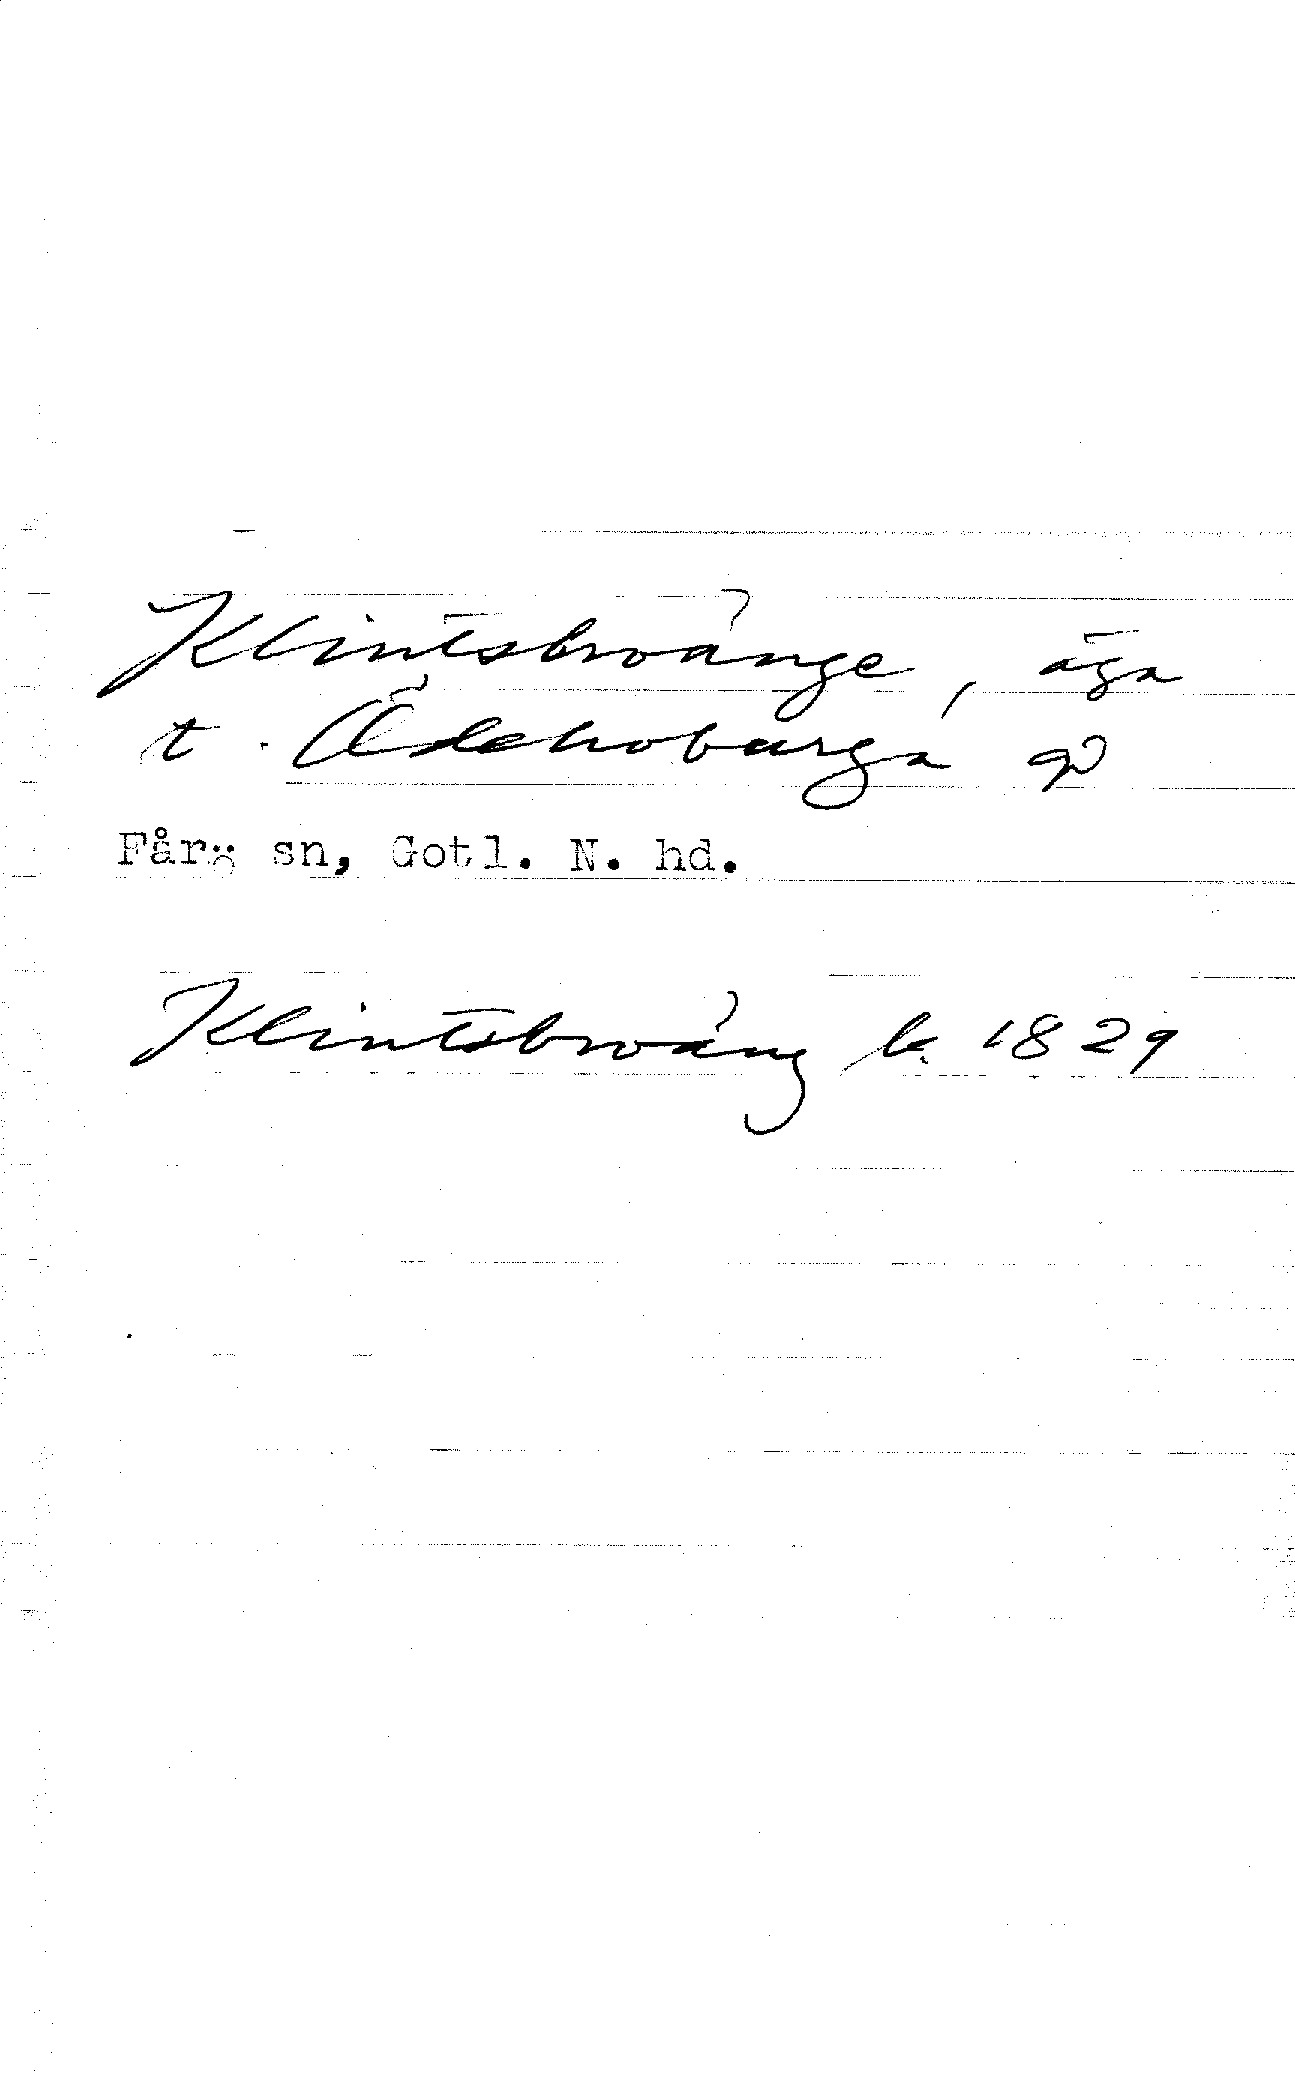 Klintsbroänge, äga
t. Ödehoburga gd
Fårö sn, Gotl. N. hd.
Klintsbroäng k. 1829